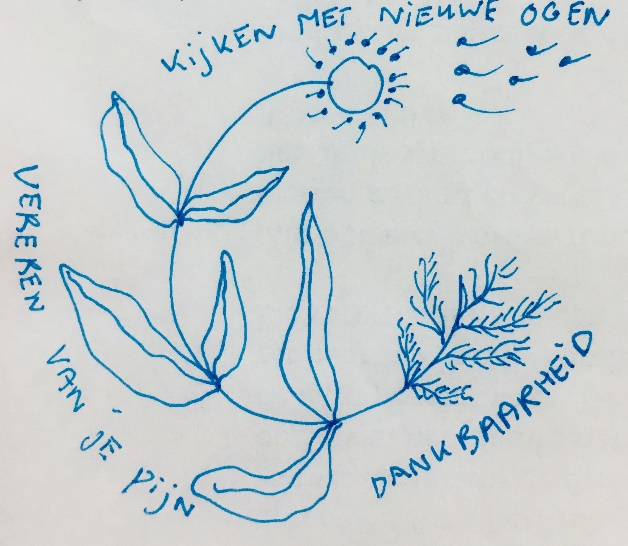 KIJKEN MET NIEUWE OGEN
VEREKEN VAN JE PIJN
DANKBAARHEID